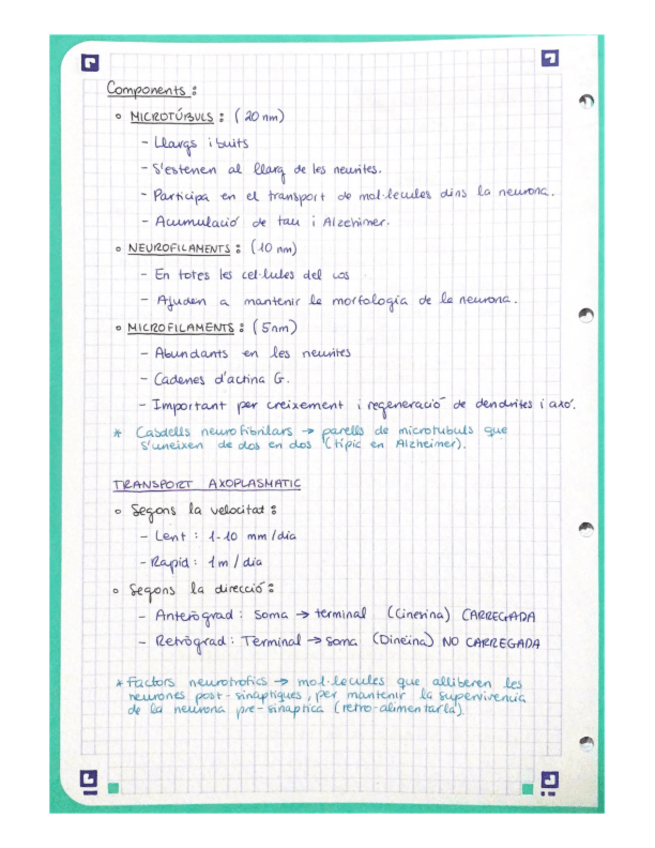 Components :
◦ MICROTÚBULS : (20 nm)
- Llargs i buits
- S'estenen al llarg de les neurites.
- Participa en el transport de mol·lecules dins la neurona.
- Acumulació de tau i Alzehimer.
◦ NEUROFILAMENTS : (10 nm)
- En totes les cel·lules del cos
- Ajuden a mantenir la morfologia de la neurona.
◦ MICROFILAMENTS : (5nm)
- Abundants en les neurites
- Cadenes d'actina G.
- Important per creixement i regeneració de dendrites i axó.
* Casdells neurofibrilars → parells de microtubuls que
s'uneixen de dos en dos (típic en Alzheimer).
TRANSPORT AXOPLASMATIC
◦ Segons la velocitat :
- Lent : 1-10 mm/dia
- Rapid : 1m/dia
◦ Segons la direcció :
- Anterògrad : Soma → terminal (Cinesina) CARREGADA
- Retrògrad : Terminal → soma (Dineïna) NO CARREGADA
* Factors neurotrofics → mol·lecules que alliberen les
neurones post-sinaptiques, per mantenir la supervivencia
de la neurona pre-sinaptica (retro-alimentarla).